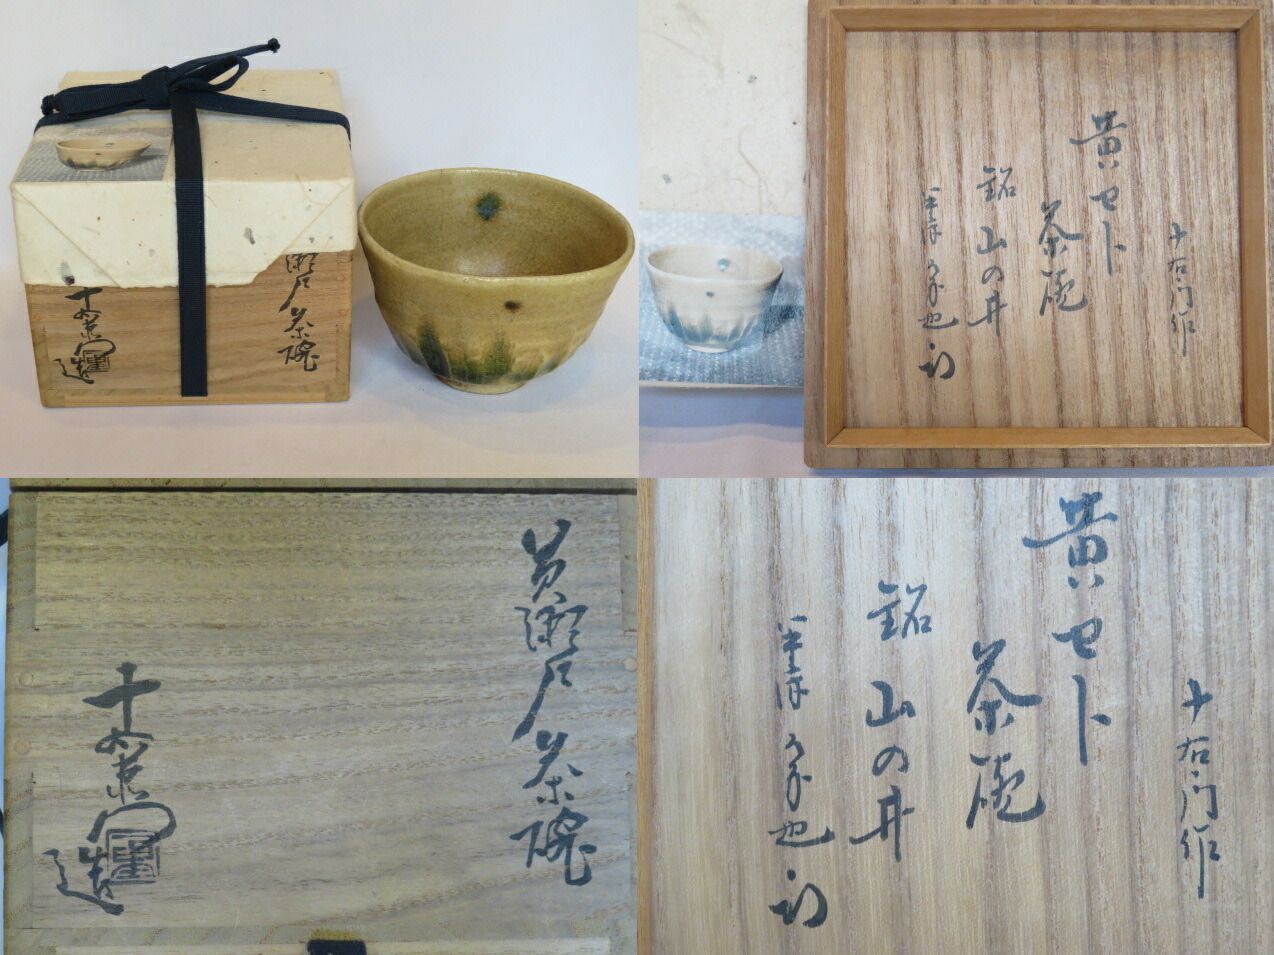 瀬戸茶碗
十右衛門
造
十右ヱ門作
黄セト
茶碗
銘山の井
黄瀬戸茶碗
十右衛門
造
十右ヱ門作
黄セト
茶碗
銘山の井